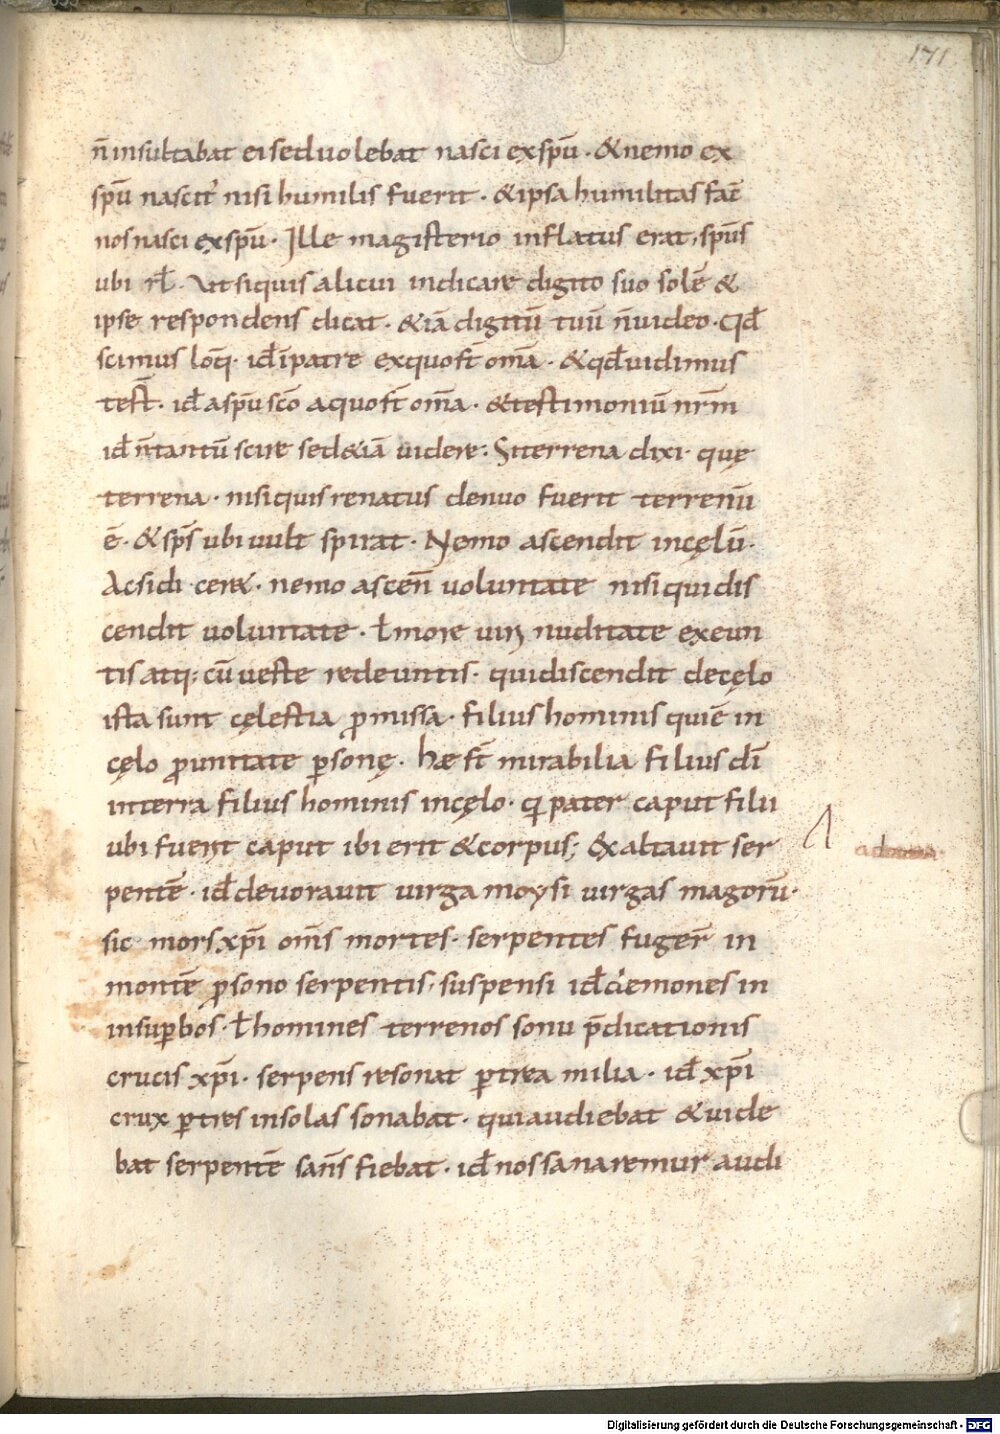 171
n̄ insultabat ei sed uolebat nasci ex spū · & nemo ex
spū nascit᷑ nisi humilis fuerit · & ipsa humilitas fac̄
nos nasci ex spū · Ille magisterio inflatus erat, sp̄us
ubi · Ut si quis alicui indicare digito suo solē &
ipse respondens dicat · & iā digitū tuū n̄ uideo · Qđ
scimus loq̄ · id ī patre ex quo st̄ om̄a · & qđ uidimus
test̄ · id a spū sc̄o a quo st̄ om̄a · & testimoniū nr̄m
id n̄ tantū scire sed & iā uidere : Si terrena dixi · quę
terrena · nisi quis renatus denuo fuerit terrenū
ē · & sp̄s ubi uult spirat · Nemo ascendit in cęlū ·
Ac si di · nemo ascen̄ uoluntate nisi qui dis
cendit uoluntate · ł more uiri nuditate exeun
tis atq; cū ueste redeuntis · qui discendit de cęlo
ista sunt cęlestia ꝓmissa · filius hominis qui ē in
cęlo ꝓ unitate ꝑsonę · Hæ st̄ mirabilia filius dī
in terra filius hominis in cęlo · pater caput filii
ubi fuerit caput ibi erit & corpus; Exaltauit ser
pentē · id deuorauit uirga moysi uirgas magorū ·
sic mors xp̄i om̄s mortes · serpentes fuger̄ in
montē ꝓ sono serpentis, suspensi id demones in
insuꝑbos · ł homines terrenos sonu p̄dicationis
crucis xp̄i · serpens resonat ꝑ trea milia · id xp̄i
crux ꝑ tres insolas sonabat · qui audiebat & uide
bat serpentē san̄s fiebat · id nos sanaremur audi
Digitalisierung gefördert durch die Deutsche Forschungsgemeinschaft - DFG